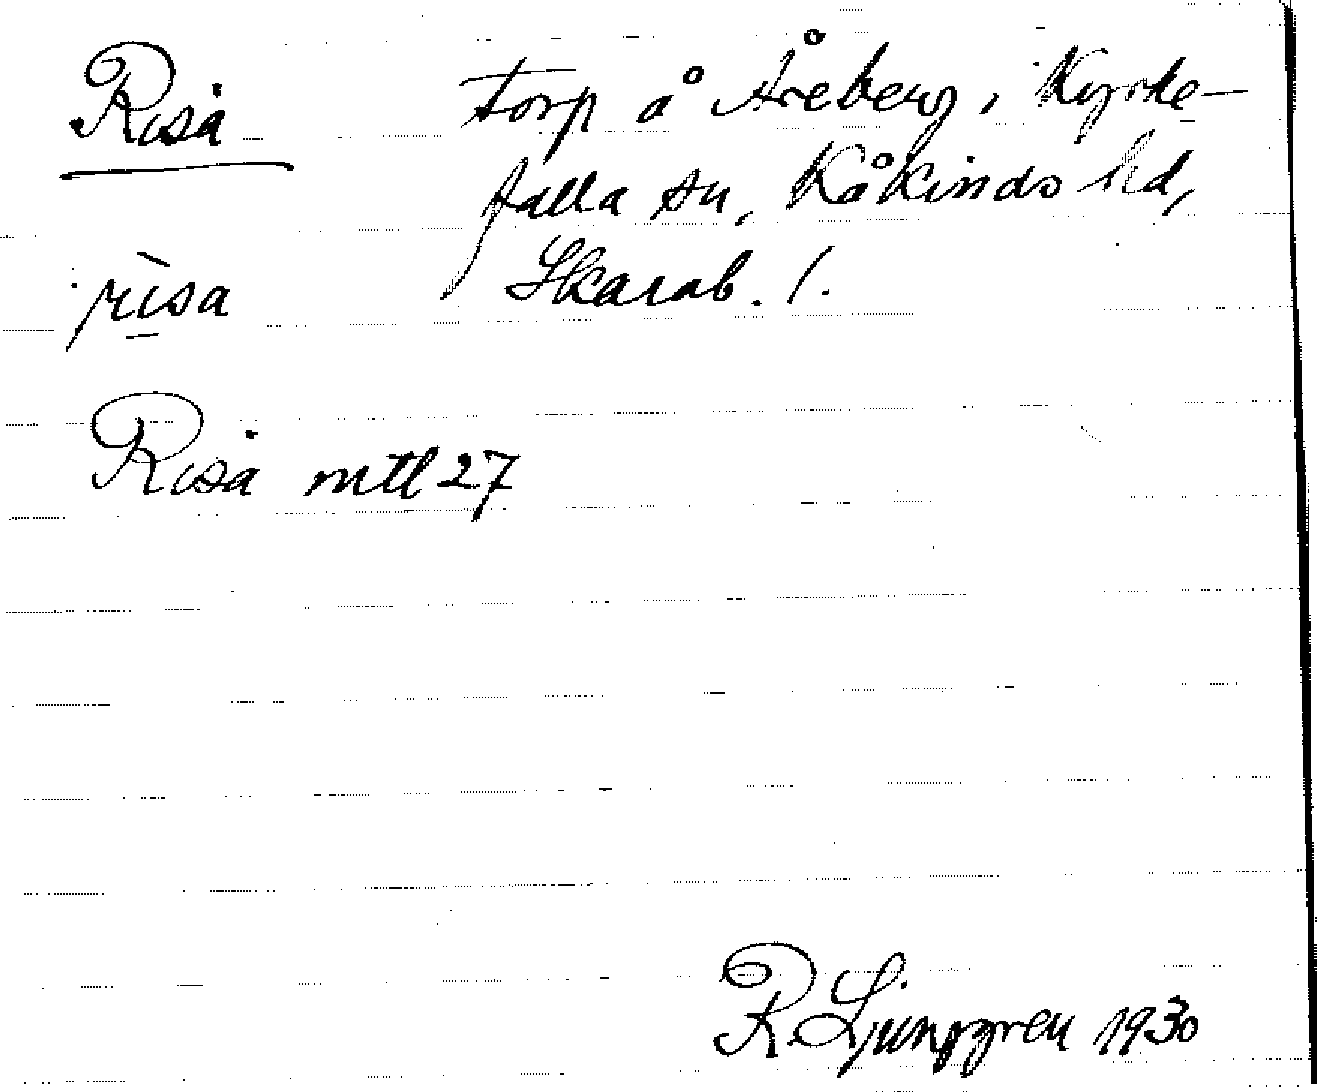 Riså torp å Åreberg, Kyrke-
falla sn, Kåkinds hd,
rìsa Skarab. l.
Riså mtl 27
R. Ljunggren 1930